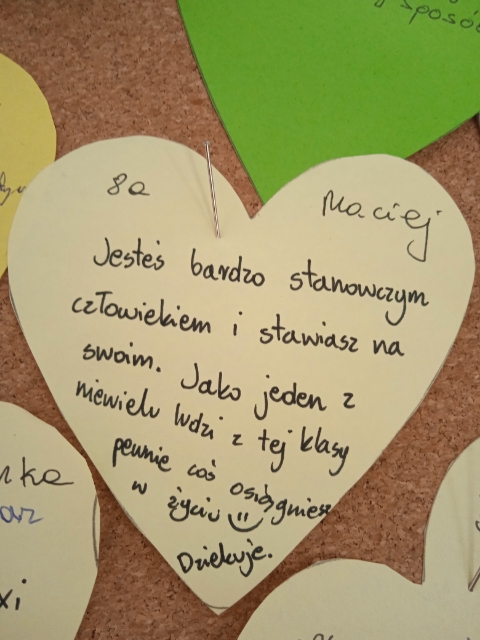 sposób
8a
Maciej
Jesteś bardzo stanowczym
człowiekiem i stawiasz na
swoim. Jako jeden z
niewielu ludzi z tej klasy
pewnie coś osiągniesz
w życiu
Dziekuje.
rka
xi